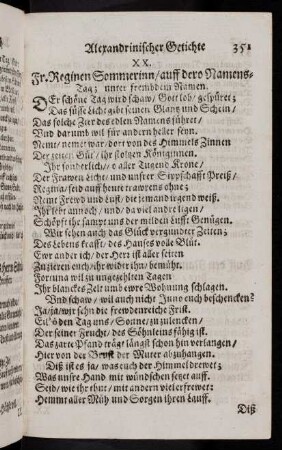 Alexandrinischer Getichte 351
XX.
Fr. Reginen Sommerinn/ auff dero Namens-
Tag; unter frembdem Namen.
DEr schöne Tag wird schaw/ Gott lob/ gespüret;
Das süsse Licht gibt seinen Glantz und Schein/
Das solche Zier des edlen Namens führet/
Vnd darumb wil für andern heller seyn.
Nemt/ nemet war/ dort von des Himmels Zinnen
Der zeiten Gül/ ihr stoltzen Königinnen.
Ihr sonderlich/ o aller Tugend Krone/
Der Frawen Liecht/ und unsrer Sippschafft Preiß/
Regina/ seid auff heute trawrens ohne;
Nemt Frewd und Lust/ die jemand irgend weiß.
Ihr
Schöpfft ihr sampt uns der milden Lüfft Genügen.
Wir sehen auch das Glück vergundter Zeiten;
Des Lebens krafft/ des Hauses volle Blüt.
Ewr ander ich/ der Herz ist aller seiten
Zu zieren euch/ ihr widrt ihn/ bemüht.
Fortuna wil zu ungezehlten Tagen
Ihr blanckes Zelt umb ewre Wohnung schlagen.
Vnd schaw/ wil auch nicht Juno euch beschencken?
Ja/ja/ wir sehn die frewdenreiche Frist.
der Tag eins/ Sonne/ zu zulencken/
Der seiner Frucht/ des Söhnleins fähig ist.
Das zarte Pfand trägt längst schon hin verlangen/
Hier von der Brust der Muter abzuhangen.
Diß ist es ja/ was euch der Himmel drewet;
Was unsre Hand mit wündschen setzet auff.
Seid/ wie ihr thut/ mit andern viel erfrewet:
Hemmt aller Müh und Sorgen ihren Lauff.
Diß